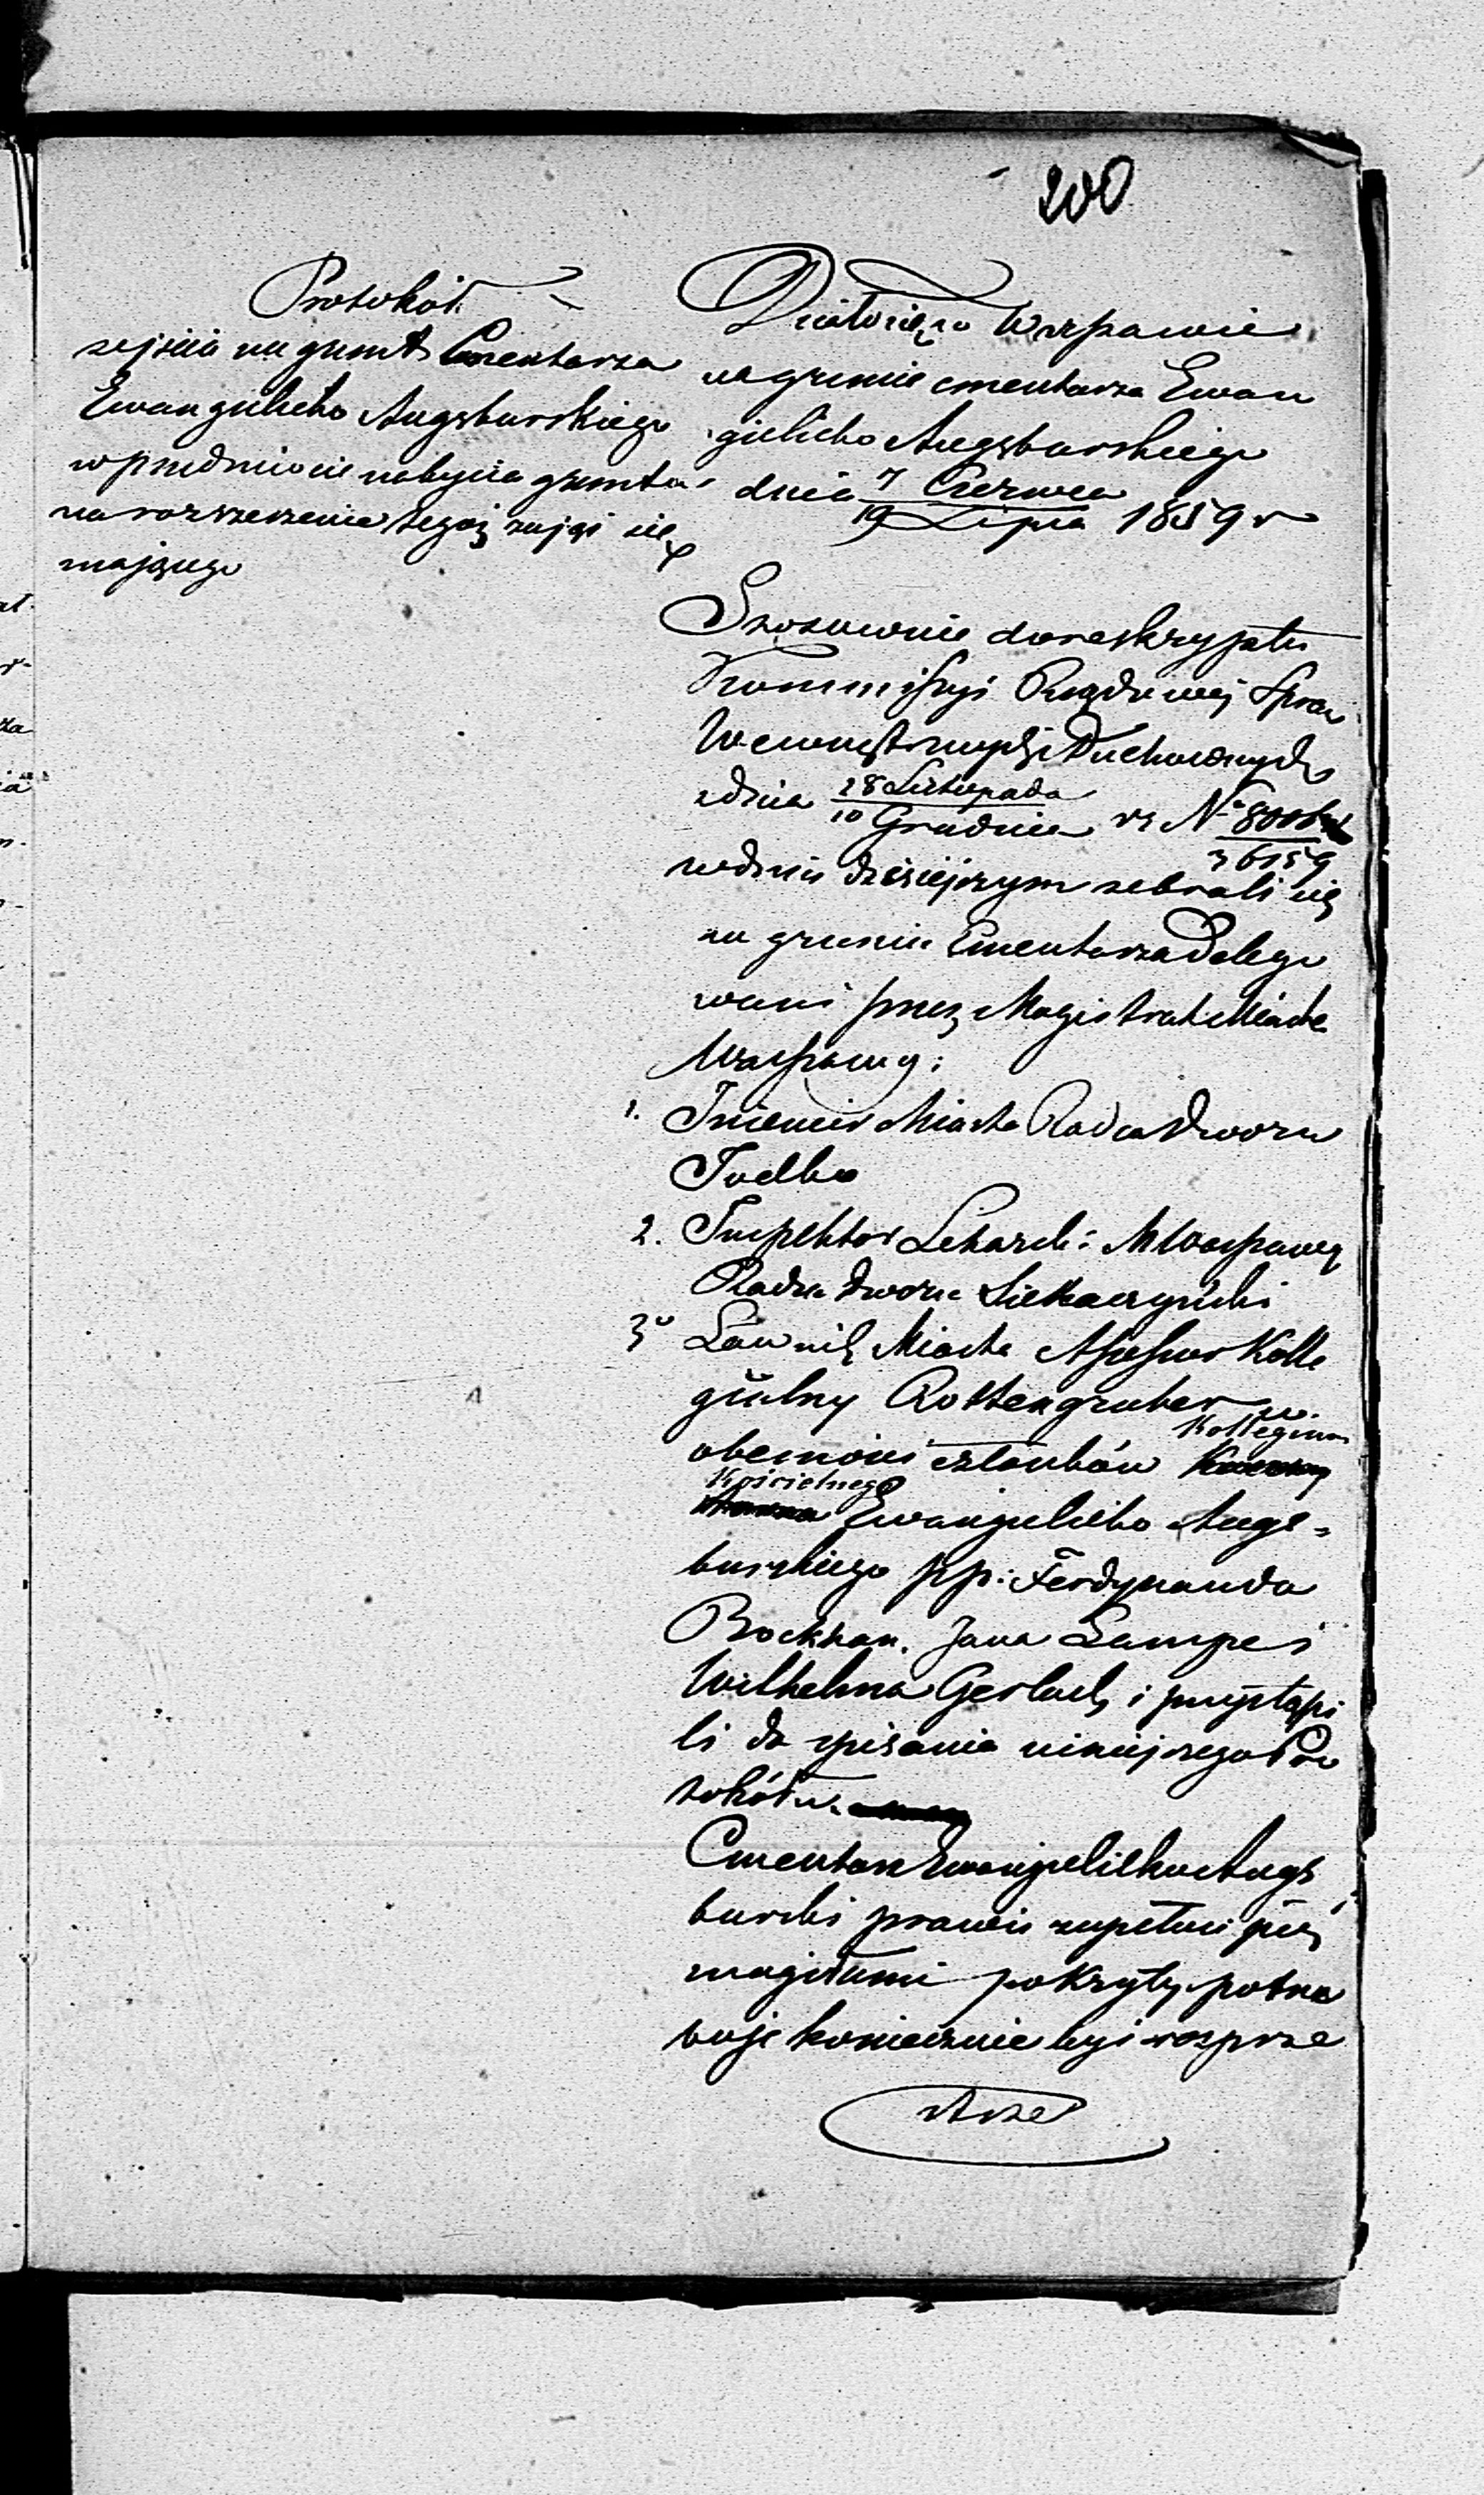 200
Protokół
zejścia na grunt Cmentarza
Ewangelicko Augsburskiego
w przedmiocie nabycia gruntu
na rozszerzenie tegoż zająć się
mającego
Działo się w Warszawie
na gruncie cmentarza Ewan
gielicko Augsburskiego
dnia 7 Czerwca
19 Lipca 1859 r
Stosownie do reskryptu
Kommissyi Rządowej Spraw
Wewnętrznych i Duchownych
z dnia 28 Listopada
10 Grudnia r. N°
36159
w dniu dzisiejszym zebrali się
na gruncie Cmentarza Delego
wani przez Magistrat Miasta
Warszawy:
1. Inżenier Miasta Radca Dworu
2. Inspektor Lekarski M Warszawy
Radca Dworu
3° Ławnik Miasta Assessor Kolle
gialny Rottengruber w
obecności członków Kollegium
Kościelnego Ewangielicko Augs=
burskiego pp: Ferdynanda
Jana Lampe i
Wilhelma Gerlach, i przystąpi
li do spisania niniejszego Pro
tokółu.
Cmentarz Ewangelicko Augs
burski prawie zupełnie już
mogiłami pokryty potrze
buje koniecznie być rozprze